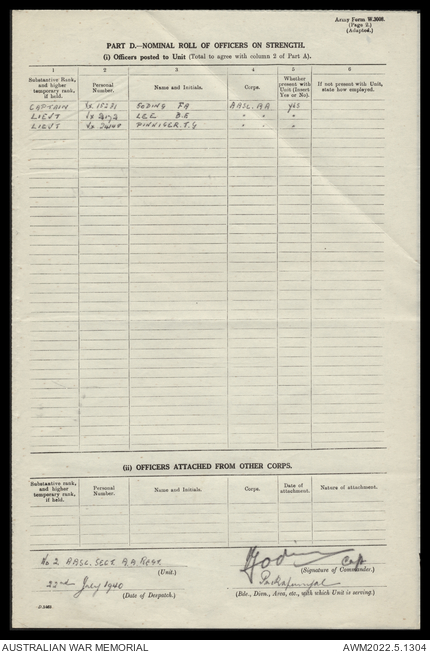 Army Form W.3008.
(Page 2.)
(Adapted.)
PART D.—NOMINAL ROLL OF OFFICERS ON STRENGTH.
(i) Officers posted to Unit (Total to agree with column 2 of Part A).
1 2 3 4 5 6
Substantive Rank, and higher temporary rank, if held. Personal Number. Name and Initials. Corps. Whether present with Unit (Insert Yes or No). If not present with Unit, state how employed.
CAPTAIN F A AASC. A.A yes
LIEUT LEE B.E " " "
LIEUT " " "
(ii) OFFICERS ATTACHED FROM OTHER CORPS.
Substantive rank, and higher temporary rank, if held. Personal Number. Name and Initials. Corps. Date of attachment. Nature of attachment.
No 2 AASC. Sect A.A Regt Capt
(Unit.) (Signature of Commander.)
22nd July 1940 Puckapunyal
(Date of Despatch.) (Bde., Divn., Area, etc., with which Unit is serving.)
AUSTRALIAN WAR MEMORIAL AWM2022.5.1304